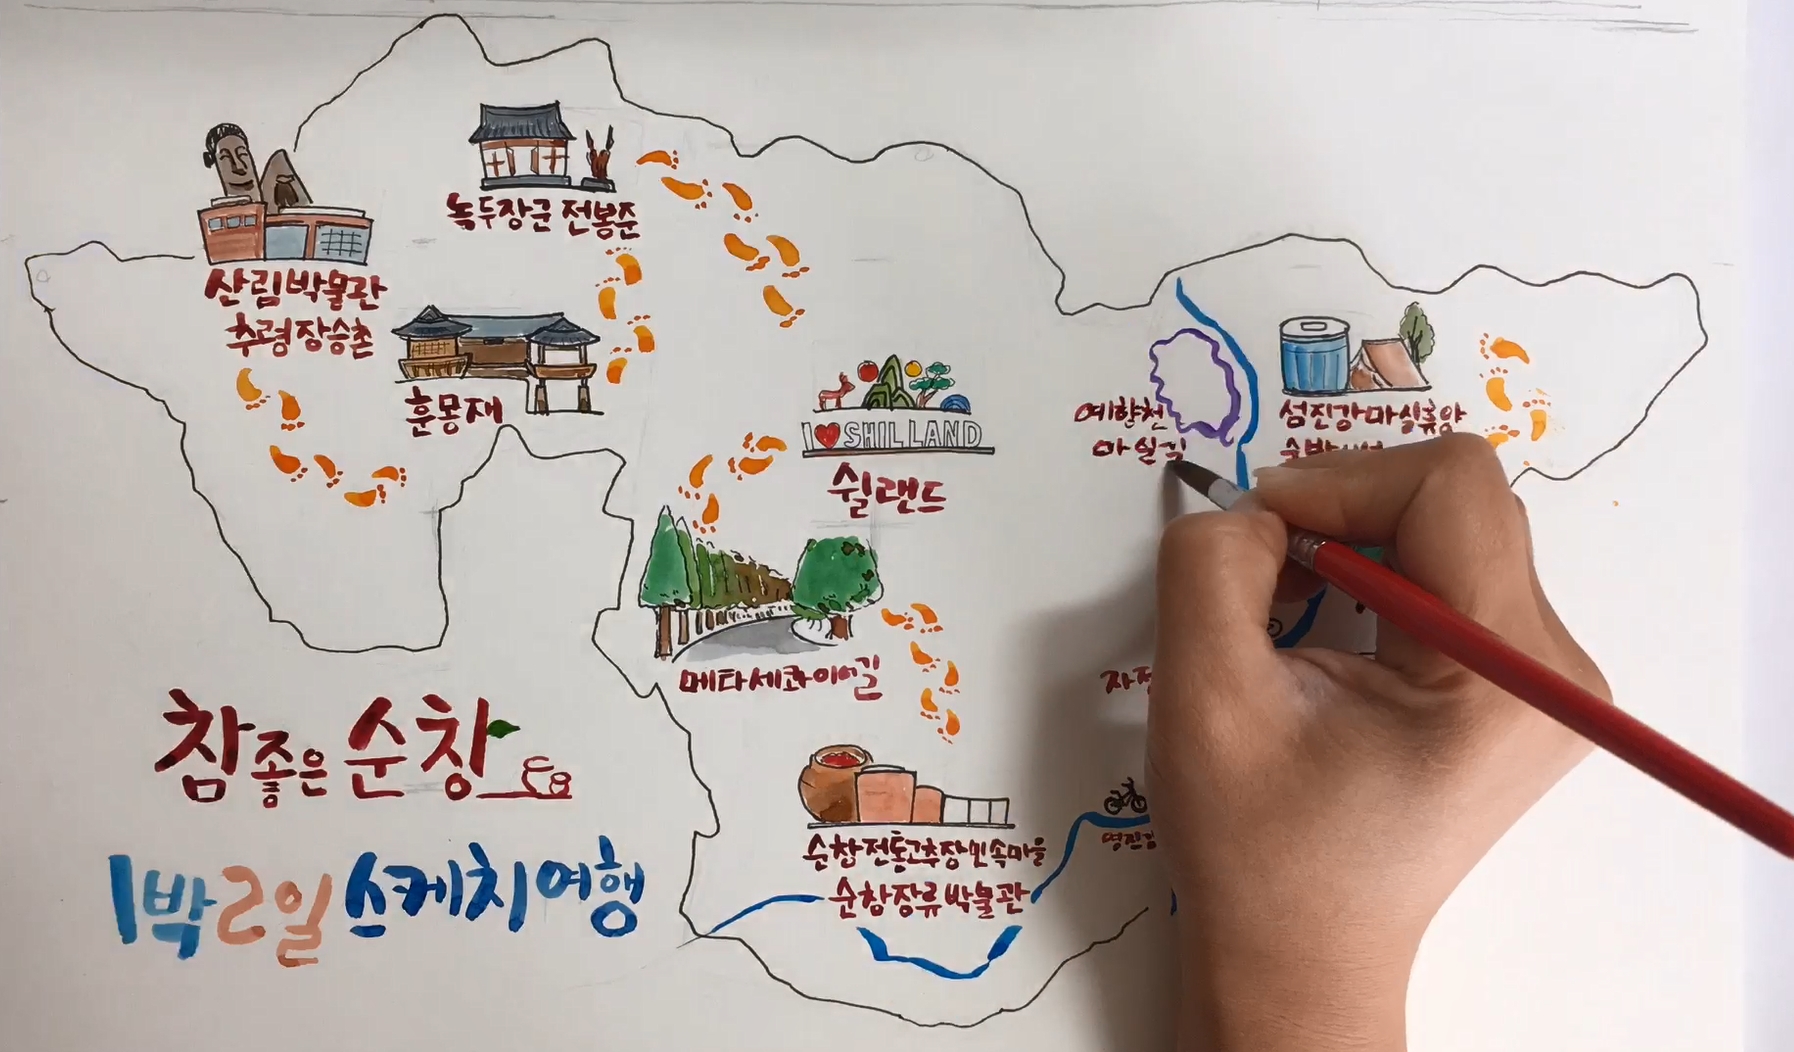 녹두장군 전봉준
산림박물관
추령장승촌
훈몽재
I SHILLAND
쉴랜드
예향천
마실길
섬진강마실휴양
메타세콰이어길
참좋은 순창
1박2일 스케치여행
순창전통고추장민속마을
순창장류박물관